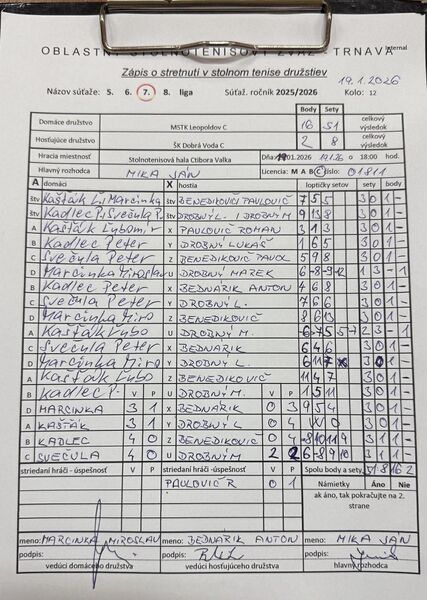 OBLASTNÝ STOLNOTENISOVÝ ZVÄZ TRNAVA
Internal
Zápis o stretnutí v stolnom tenise družstiev
19.1.2026
Názov súťaže: 5. 6. 7. 8. liga Súťaž. ročník 2025/2026 Kolo: 12
Body Sety
Domáce družstvo MSTK Leopoldov C 16 51 celkový výsledok
Hosťujúce družstvo ŠK Dobrá Voda C 2 8 celkový výsledok
Hracia miestnosť Stolnotenisová hala Ctibora Valka Dňa 19.1.26 o 18:00 hod.
Hlavný rozhodca MIKA JÁN Licencia: M A B C číslo 01811
A domáci X hostia loptičky setov sety body
štv Kašťák Ľ. Marcinka štv BENEDIKOVIČ PAULOVIČ 7 5 5 3 0 1 -
štv Kadlec P. Svečula P. štv DROBNÝ L. DROBNÝ M 9 13 8 3 0 1 -
A Kašťák Ľubomír X PAULOVIČ ROMAN 3 1 3 3 0 1 -
B Kadlec Peter Y DROBNÝ LUKÁŠ 1 6 5 3 0 1 -
C Svečula Peter Z BENEDIKOVIČ PAVOL 5 9 8 3 0 1 -
D Marcinka Miroslav U DROBNÝ MAREK 6 -8 -9 -12 1 3 - 1
B Kadlec Peter X BEDNÁRIK ANTON 4 6 8 3 0 1 -
C Svečula Peter Y DROBNÝ L. 7 6 6 3 0 1 -
D Marcinka Miro Z BENEDIKOVIČ 8 6 13 3 0 1 -
A Kašťák Ľubo U DROBNÝ M. -6 -7 5 5 -7 2 3 - 1
C Svečula Peter X BEDNÁRIK 6 4 6 3 0 1 -
D Marcinka Miro Y DROBNÝ L. 6 11 7 3 0 1 -
A Kašťák Ľubo Z BENEDIKOVIČ 11 4 7 3 0 1 -
B Kadlec P. V P U DROBNÝ M. V P 1 5 11 3 0 1 -
D MARCINKA 3 1 X BEDNÁRIK 0 3 9 5 4 3 0 1 -
A KAŠŤÁK 3 1 Y DROBNÝ L 0 4 W O 3 0 1 -
B KADLEC 4 0 Z BENEDIKOVIČ 0 4 -8 10 11 9 3 1 1 -
C SVEČULA 4 0 U DROBNÝ M 2 2 6 -8 9 10 3 1 1 -
striedaní hráči - úspešnosť V P striedaní hráči - úspešnosť V P Spolu body a sety 51 8 16 2
PAULOVIČ R 0 1 Námietky Áno Nie
ak áno, tak pokračujte na 2. strane
meno: MARCINKA MIROSLAV meno: BEDNÁRIK ANTON meno: MIKA JÁN
podpis: podpis: podpis:
vedúci domáceho družstva vedúci hosťujúceho družstva hlavný rozhodca